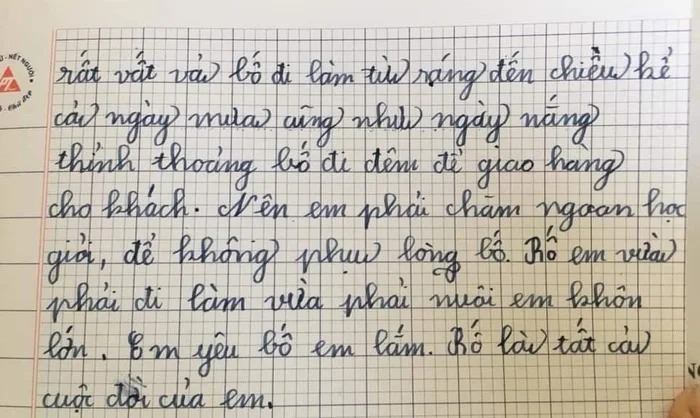 rất vất vả bố đi làm từ sáng đến chiều kể
cả ngày mưa cũng như ngày nắng
thỉnh thoảng bố đi đêm để giao hàng
cho khách. Nên em phải chăm ngoan học
giỏi, để không phụ lòng bố. Bố em vừa
phải đi làm vừa phải nuôi em khôn
lớn. Em yêu bố em lắm. Bố là tất cả
cuộc đời của em.